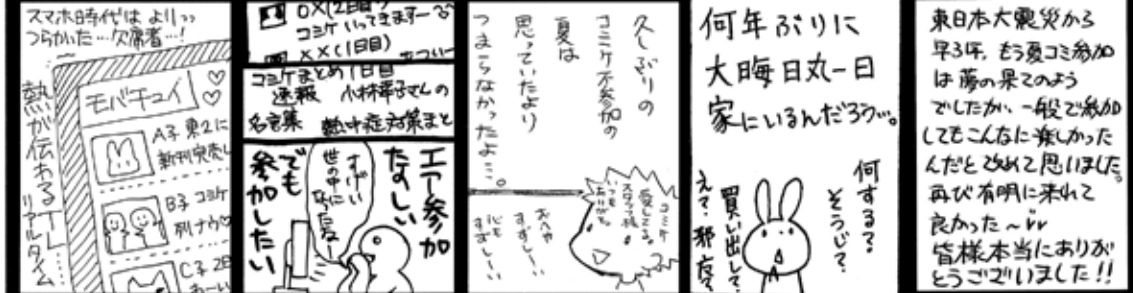 スマホ時代は よりっっ
つらかった…欠席者…!
熱が伝わるTL……
リアルタイム
モバチュイ ♡
♡
A子 東2に
新刊完売し
B子 コミケ
列ナウ
C子 2日
あーい
○×(2日目)
コミケいってきますー
××(1日目)
あつい
コミケまとめ1日目
速報 小林幸子さんの
名言集 熱中症対策まと
エアー参加
たのしい
でも
参加したい
すげい
世の中に
なったな
久しぶりの
コミケ不参加の
夏は
思っていたより
つまらなかったよ…。
コミケ
愛してる。
スタッフ様
いつも
ありがと
おへや
すずしーい
心も
すずしーい
何年ぶりに
大晦日丸一日
家にいるんだろう…。
何する?
そうじ?
買い出して?
えて?邪广?
東日本大震災から
早3年、もう夏コミ参加
は夢の果てのよう
でしたが、一般で参加
してもこんなに楽しかった
んだと改めて思いました。
再び有明に来れて
良かった~
皆様本当にありが
とうございました!!